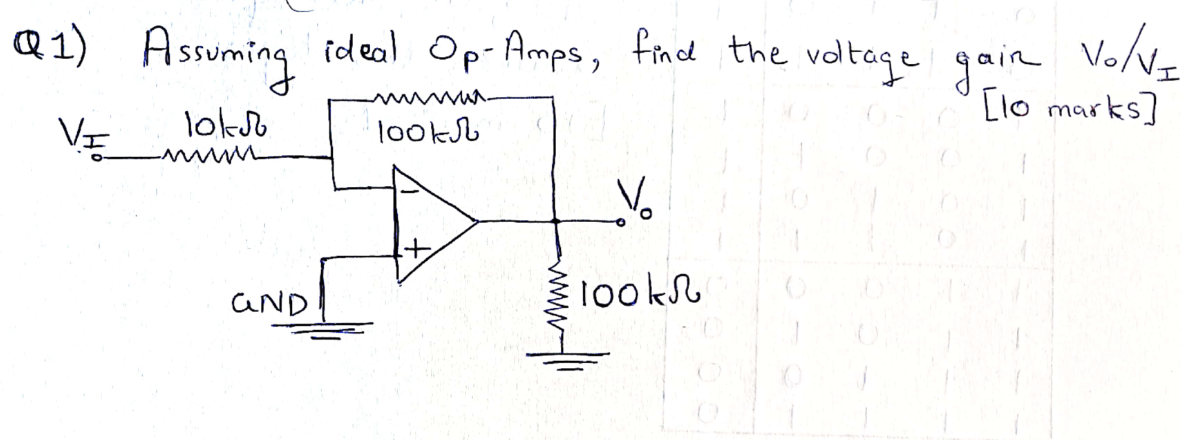 Q1) Assuming ideal Op-Amps, find the voltage gain Vo/VI
[10 marks]
VI
10kΩ
100kΩ
−
Vo
+
GND
100kΩ